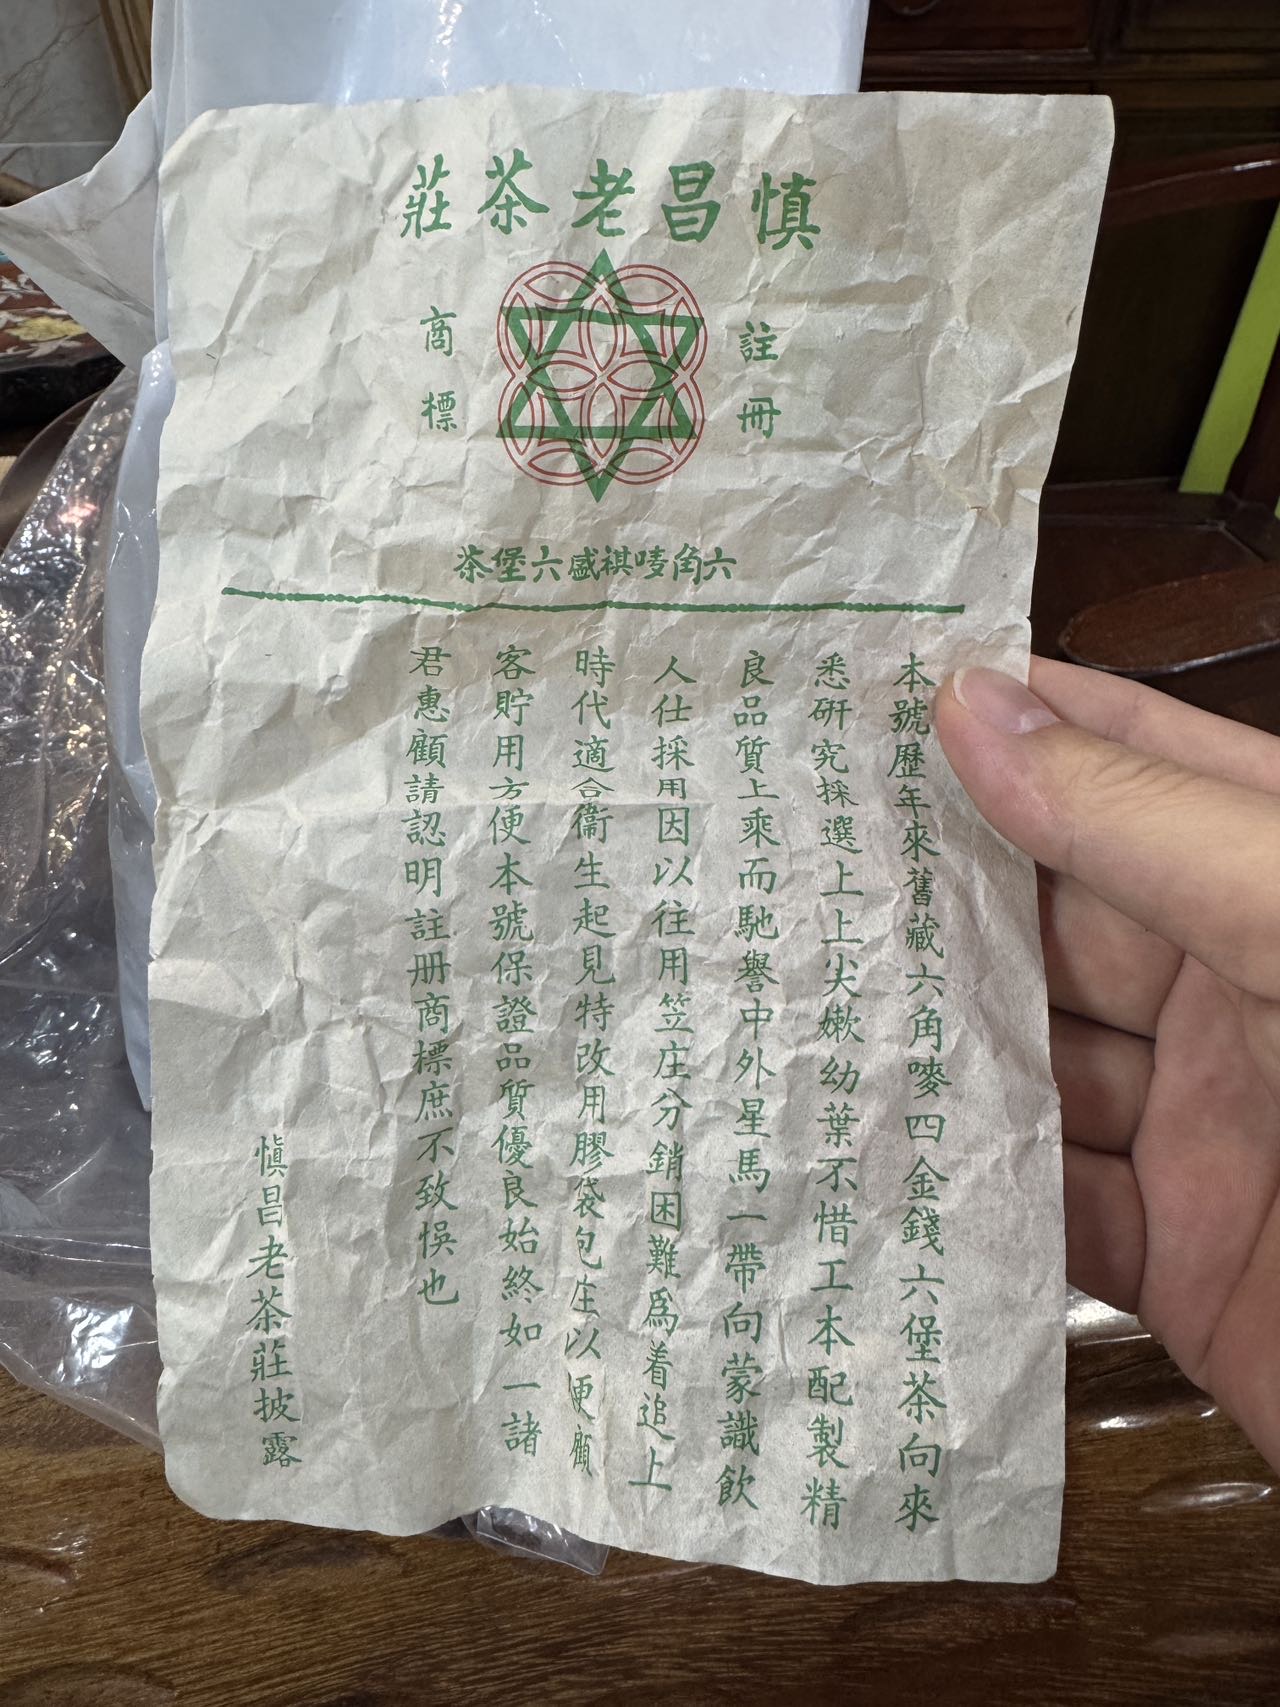 慎昌老茶莊
註冊
商標
六角嘜祺盛六堡茶
本號歷年來舊藏六角嘜四金錢六堡茶向來
悉研究採選上上尖嫩幼葉不惜工本配製精
良品質上乘而馳譽中外星馬一帶向蒙識飲
人仕採用因以往用笠庄分銷困難爲着追上
時代適合衞生起見特改用膠袋包庄以便顧
客貯用方便本號保證品質優良始終如一諸
君惠顧請認明註册商標庶不致悞也
愼昌老茶莊披露